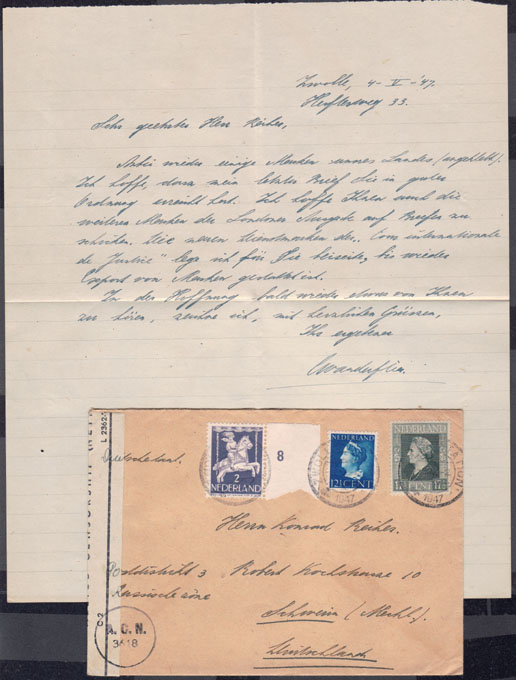 Zwolle, 4-V-'47.
33.
Sehr geehrter Herr Reiher,
Anbei wieder einige Marken unseres Landes (ungeklebt).
Ich hoffe, dass mein letzter Brief Sie in guter
Ordnung erreicht hat. Ich hoffe Ihnen auch die
weiteren Marken der Londoner Ausgabe auf Briefen zu
schicken. Die neuen Dienstmarken der „Cour internationale
de Justice" lege ich für Sie beiseite, bis wieder
Export von Marken gestattet ist.
In der Hoffnung bald wieder etwas von Ihnen
zu hören, zeichne ich, mit herzlichen Grüssen,
Ihr ergebener
L 2362
Deutschland.
2
NEDERLAND
8
NEDERLAND
12½ CENT
1947
NEDERLAND
17½ CENT 17½
1947
Herrn Konrad Reiher.
3 Robert Kochstrasse 10
Russische Zone
Schwerin (Meckl.).
Deutschland
C.2
A.C.N.
3618